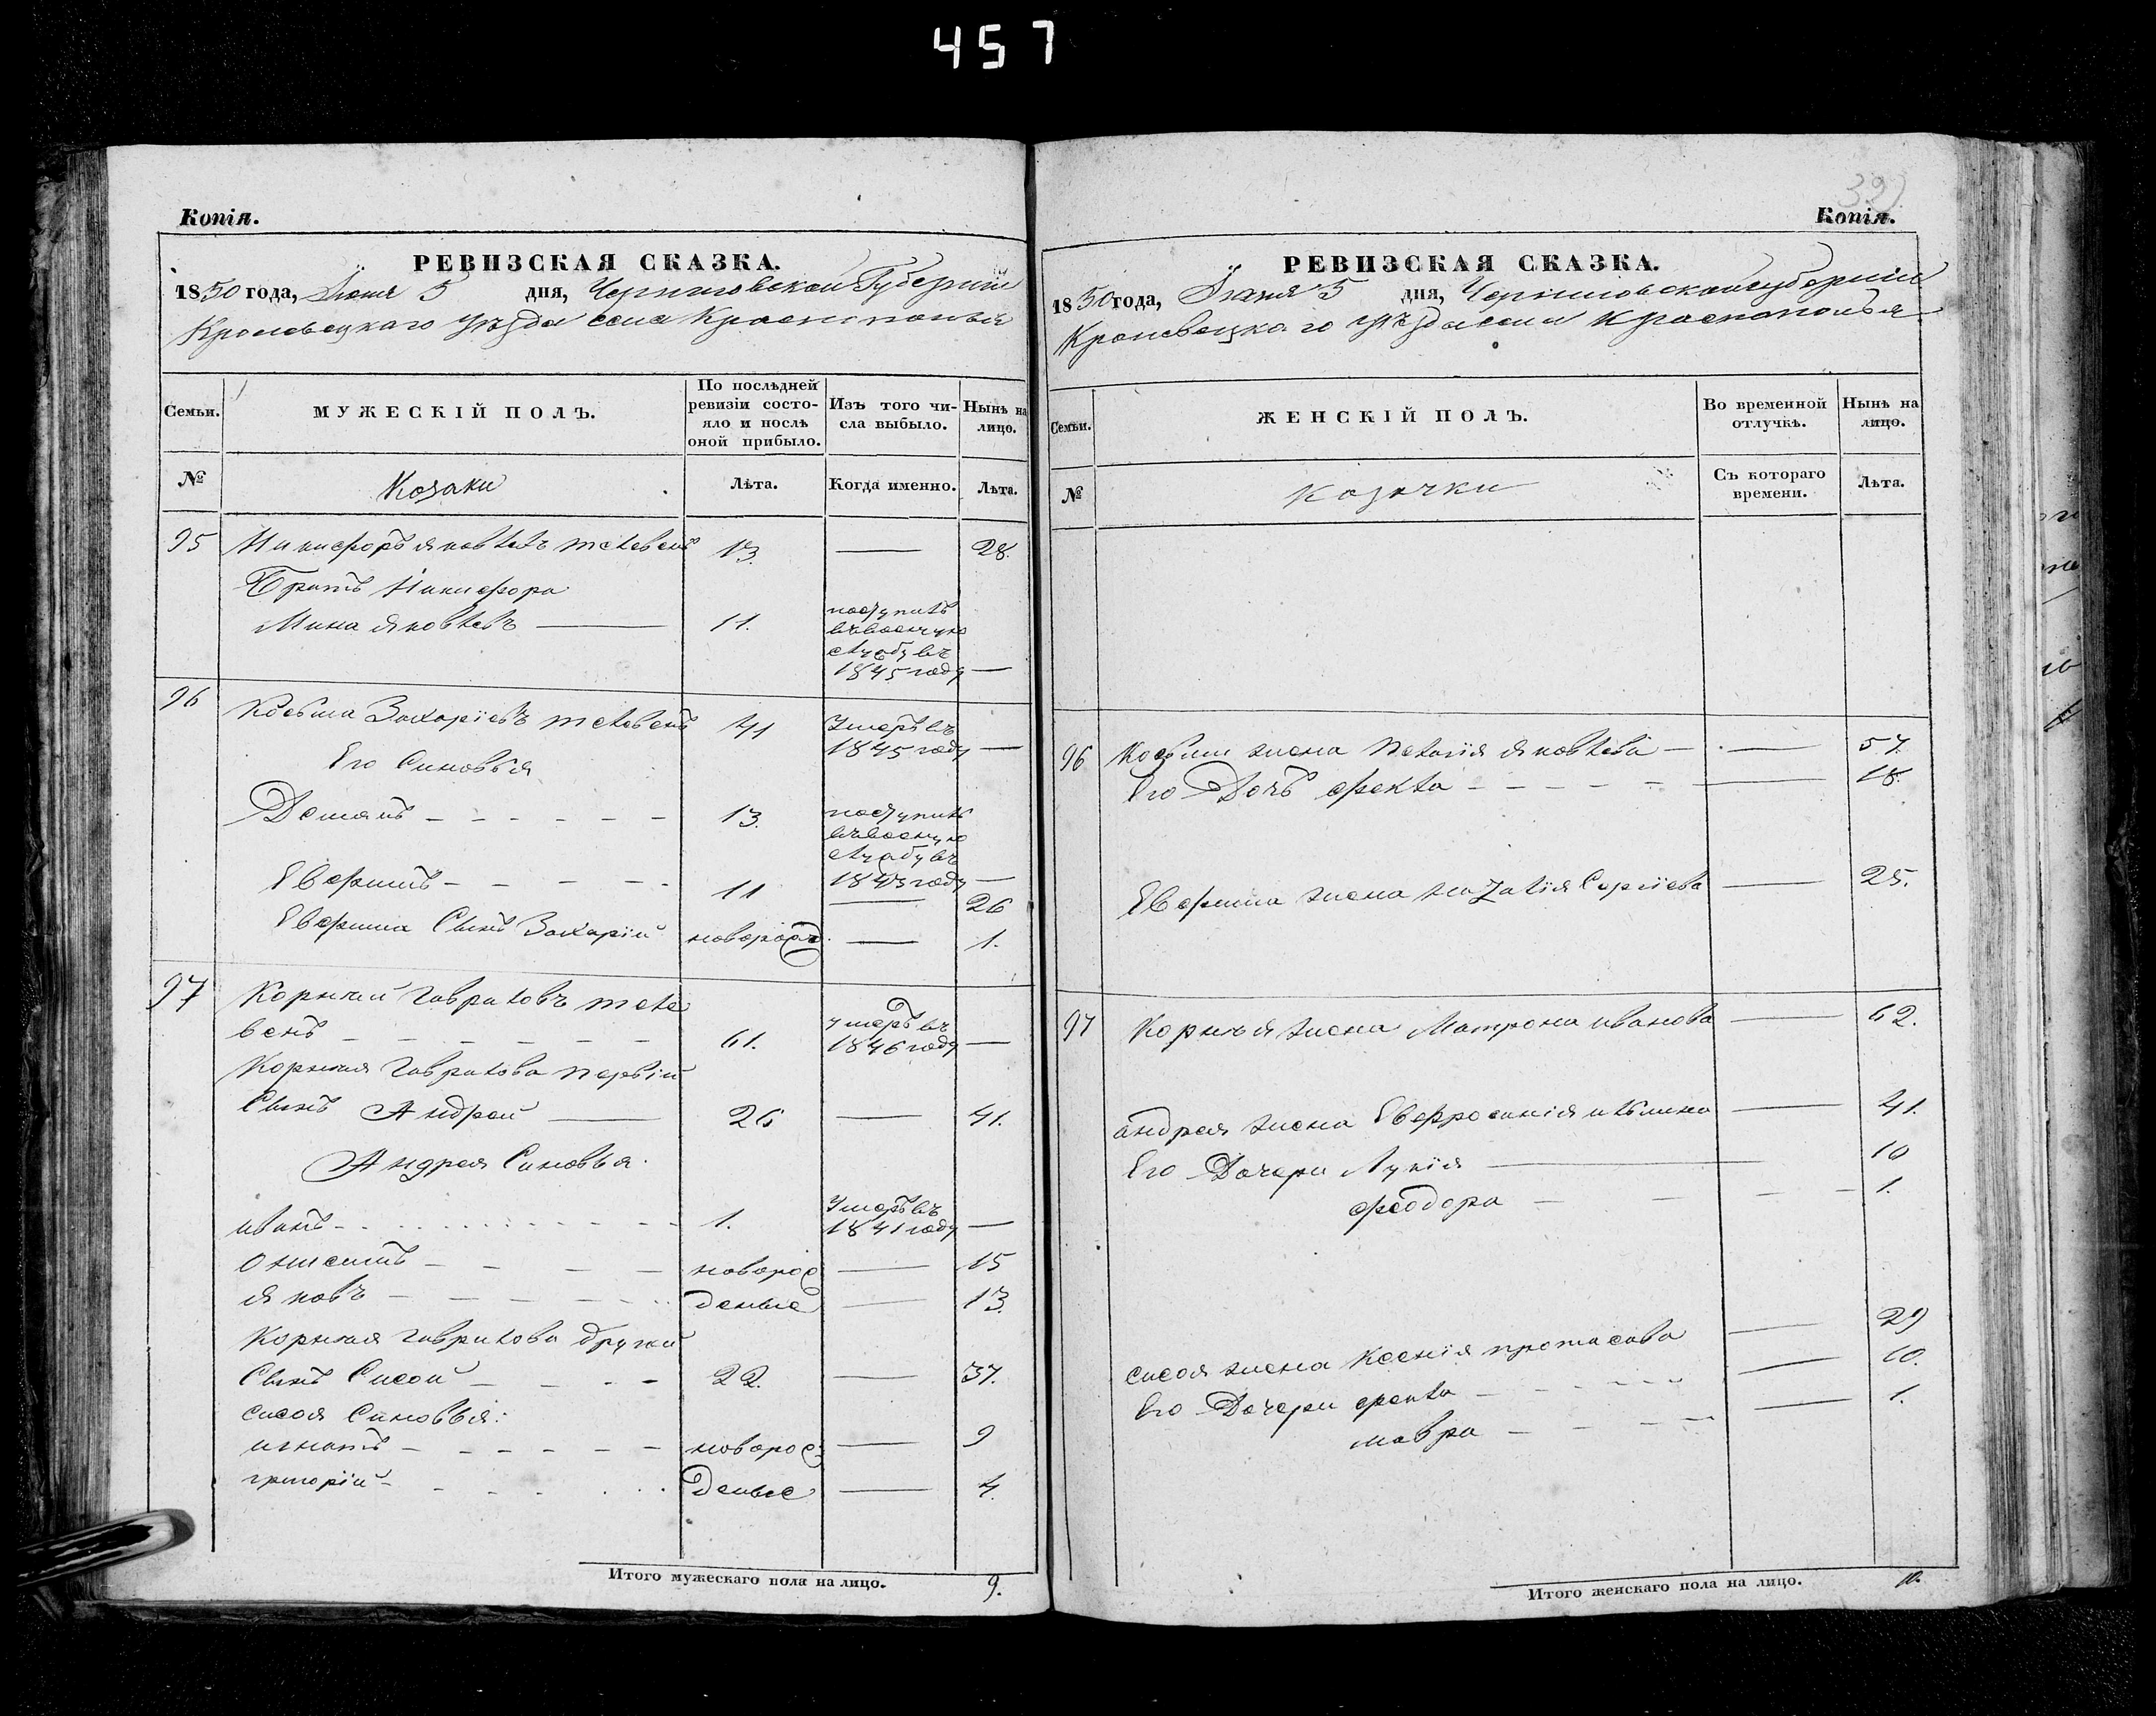 457
Копія.
РЕВИЗСКАЯ СКАЗКА.
1850 года, Іюня 5 дня, Черниговской Губерніи
Кролевецкаго уѣзда села Краснополья
Семьи.
МУЖЕСКІЙ ПОЛЪ.
По послѣдней ревизіи состояло и послѣ оной прибыло.
Изъ того числа выбыло.
Нынѣ на лицо.
№
Козаки
Лѣта.
Когда именно.
Лѣта.
95 Никифоръ яковлевъ 13. — 28.
Братъ Никифора
Мина яковлевъ — 11. поступилъ въ военную службу въ 1845 году —
96 Косьма Захаріевъ 41 Умеръ въ 1845 году —
Его Синовья
Демянъ 13. поступилъ въ военную службу въ 1843 году —
Евфимъ 11 — 26
Евфима Сынъ Захарій новорожд. — 1.
97 Корнѣй Гавриловъ
61. умеръ въ 1846 году —
Корнѣя Гаврилова первій
Сынъ Андрей — 26 — 41.
Андрея Синовья.
иванъ 1. Умеръ въ 1841 году —
Онисимъ новорож — 15
яковъ деные — 13.
Корнѣя Гаврилова другій
Сынъ Сисой 22. — 37.
сисоя Синовья:
игнатъ новорож — 9
григорій деные — 4.
Итого мужескаго пола на лицо. 9.
39
Копія.
РЕВИЗСКАЯ СКАЗКА.
1850 года, Іюня 5 дня, Черниговской губерніи
Кролевецкаго уѣзда села Краснополья
Семьи.
ЖЕНСКІЙ ПОЛЪ.
Во временной отлучкѣ.
Нынѣ на лицо.
№
Козачки
Съ котораго времени.
Лѣта.
96 Косьми жена Пелагія яковлева — 57.
Его Дочь фекла — 18.
Евфима жена Сергіева — 25.
97 Корнѣя жена Матрона иванова — 62.
андрея жена Евфросинія — 41.
Его Дочери Лукія — 10
феодора — 1.
сисоя жена Ксенія протасова — 29
Его Дочери фекла — 10.
мавра — 1.
Итого женскаго пола на лицо. 10.